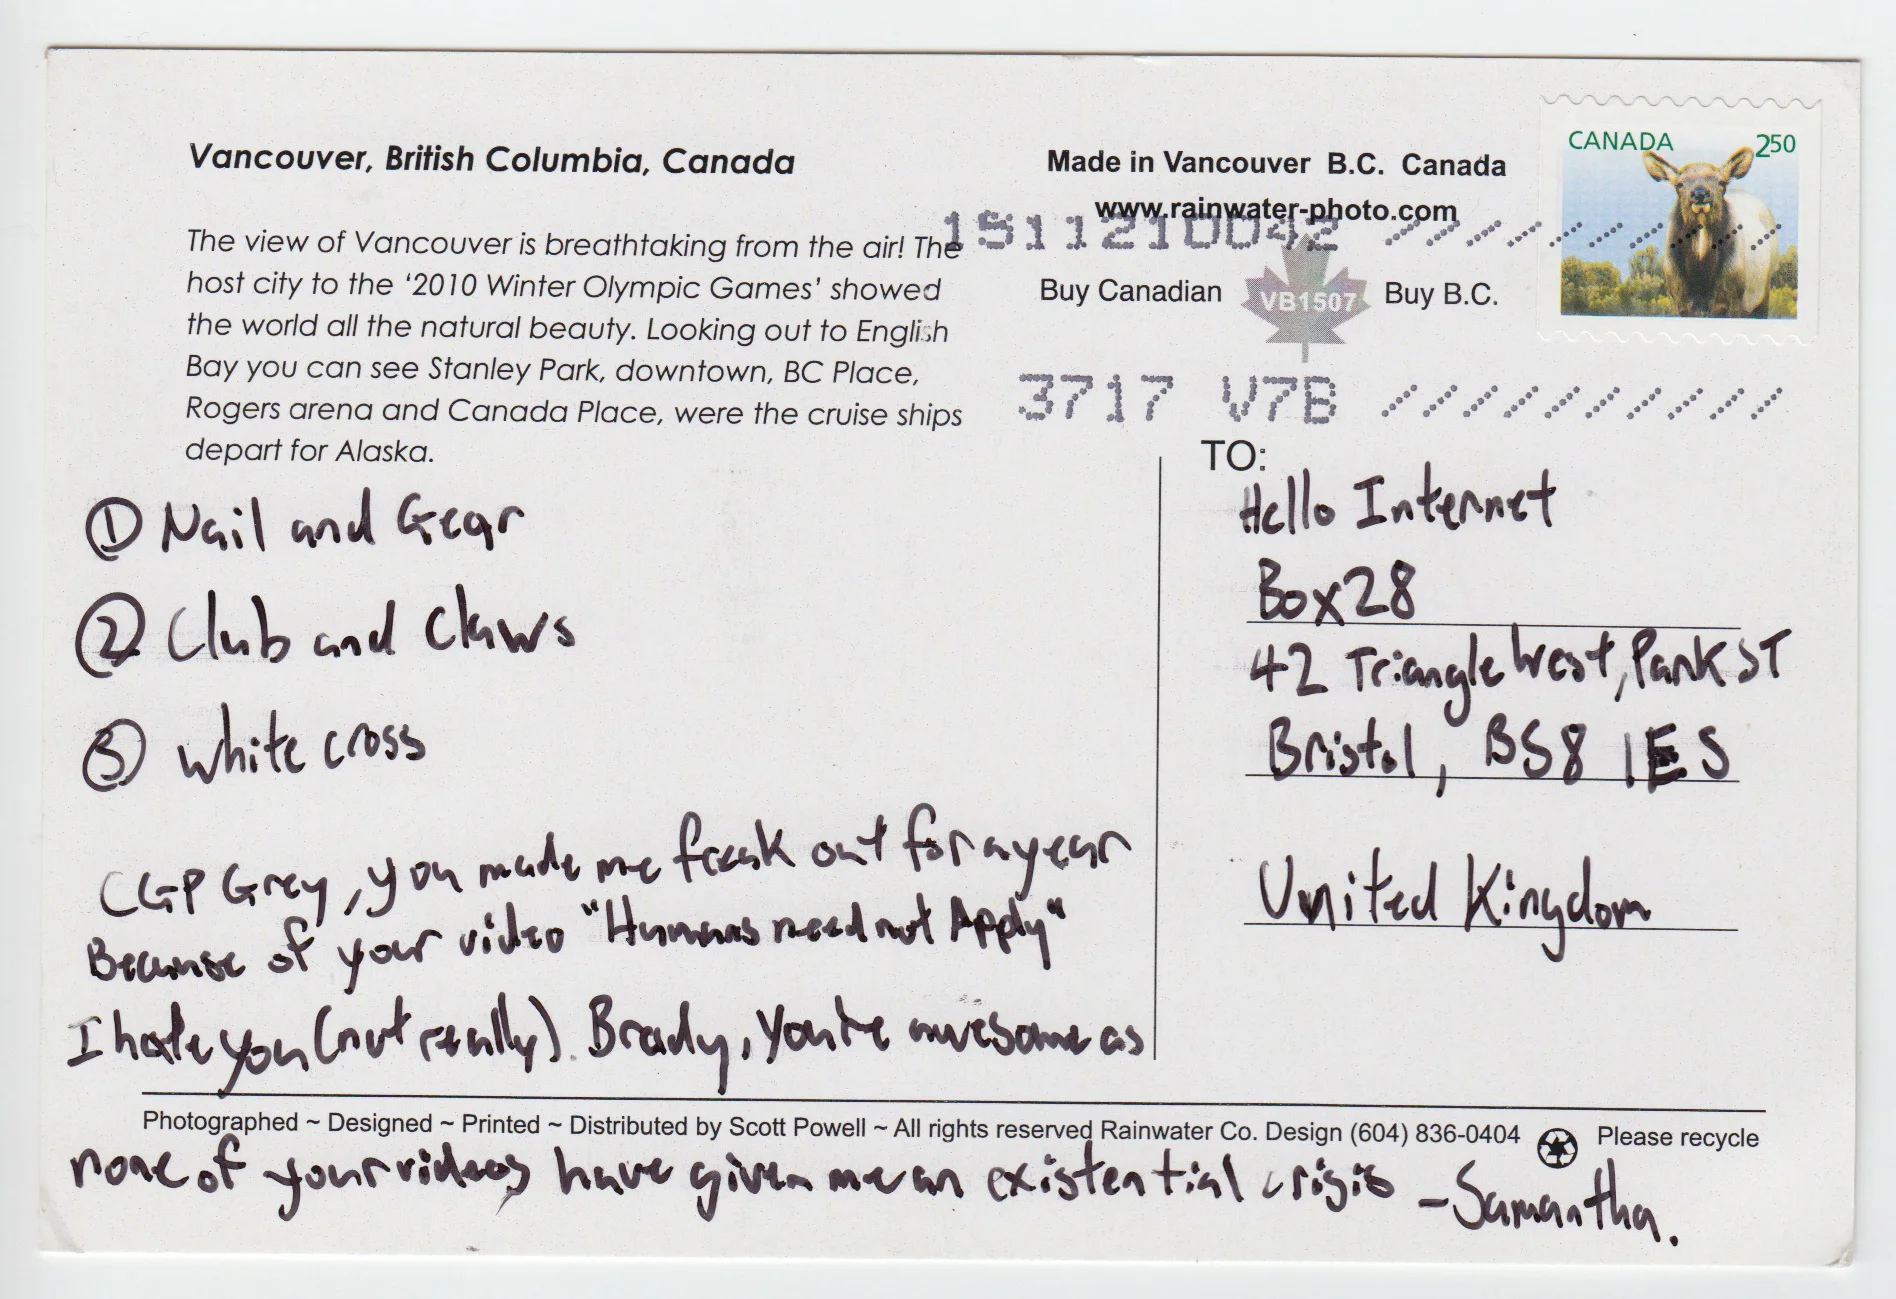 Vancouver, British Columbia, Canada
The view of Vancouver is breathtaking from the air! The
host city to the ‘2010 Winter Olympic Games’ showed
the world all the natural beauty. Looking out to English
Bay you can see Stanley Park, downtown, BC Place,
Rogers arena and Canada Place, were the cruise ships
depart for Alaska.
Made in Vancouver B.C. Canada
www.rainwater-photo.com
1511210042
Buy Canadian VB1507 Buy B.C.
3717 V7B
CANADA 250
① Nail and Gear
② Club and Claws
③ White cross
CGP Grey, you made me freak out for a year
Because of your video "Humans need not Apply"
I hate you (not really). Brady, You're awesome as
TO:
Hello Internet
Box 28
42 Triangle West, Park ST
Bristol, BS8 1ES
United Kingdom
Photographed ~ Designed ~ Printed ~ Distributed by Scott Powell ~ All rights reserved Rainwater Co. Design (604) 836-0404 Please recycle
none of your videos have given me an existential crisis - Samantha.